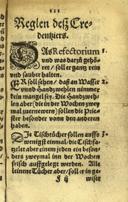 Reglen deß Cre-
dentziers.
DAs Refectorium
vnd was darzů gehö-
ret / soll er gantz rein
vnd sauber halten.
2 Er soll sehen / daß an Wasser
vnd Handzwehlen nimmer
kein mangel sey. Die Handzweh-
len aber / die in der Wochen zwey
mal zuerneweren / sollen die
von der anderen
haben.
3 Die Tischtücher sollen auffs
wenigst einmal / die Tischsa-
aber einem jeden besonders
zweymal inn der Wochen
frisch auffgelegt werden. Alle
leinene Tücher aber / soll er / so offt
wischt